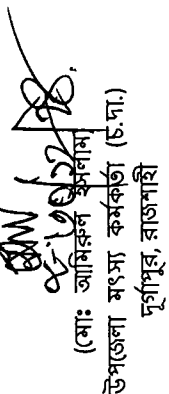 (মোঃ আমিরুল ইসলাম)
উপজেলা মৎস্য কর্মকর্তা (চ.দা.)
দূর্গাপুর, রাজশাহী